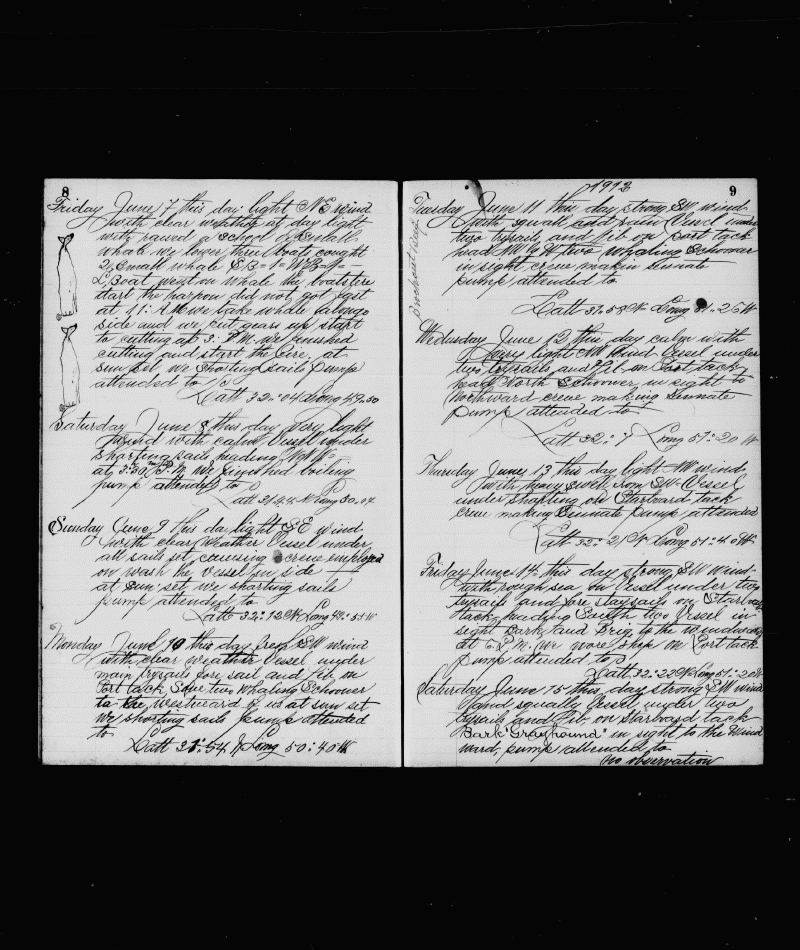 8
Friday June 7 this day light NE wind
with clear weather at day light
with raised a School of Small
whale we lower three boats caught
2 Small whale S,B=1= W,B=1=
L,Boat went on whale the boatstere
start the harpon did not got fast
at 11: A.M we take whale along
side and we cut gears up start
to cutting at 3: P.M. we finished
cutting and start the fire. at
Sun set, we shorting sails Pump
attended to
Latt 32=04 Long 49.50
Saturday June 8 this day Very light
wind with calm Vessel under
shorting sails heading
at, 3:30 P.M. We finished boiling
pump attended to
Latt 31.24 N Long 50.04
Sunday June 9 this day light SE wind
with clear Weather Vessel under
all sails set crusing crew employed
on wash the Vessel in side
at Sun set we shorting sails
pump attended to
Latt 32=12 N Long 49=55 W
Monday June 10 this day fresh SW wind
with clear weather Vessel under
main trysails fore sail and jib on
Port tack, Saw two Whaling Schooner
to the westward of us at sun set
we shorting sails pump attended
to
Latt 31=54 N Long 50=40 W
1912
9
Tuesday June 11 this day strong SW wind
with squall and rain Vessel under
two trysails and jib on Port tack
head NW & W two Whaling Schooner
in sight crew makin Sennate
pump attended to
Latt 31.58 N Long 51.25 W
Wednesday June 12 this day calm with
Very light NW wind Vessel under
two trysails and jib on Port tack
head North Schooner in sight to
Northward crew making Sennate
pump attended to
Latt 32=7 Long 51=20 W
Thursday June 13 this day light NW wind
with heavy swell from SW Vessel
under shorting on Starboard tack
crew making Sennate pump attended
Latt 32=21 N Long 51=40 W
Friday June 14 this day strong SW wind
with rough sea on Vessel under two
trysails and fore staysails on Starboard
tack heading South two Vessel in
sight Bark and Brig to the windward
at 6. P.M. we wore ship on Port tack
pump attended to
Latt 32=22 N Long 51=20 W
Saturday June 15 this day strong SW wind
and squally Vessel under two
trysails and jib on Starboard tack
Bark "Grayhound" in sight to the Wind
ward, pump attended to
no observation